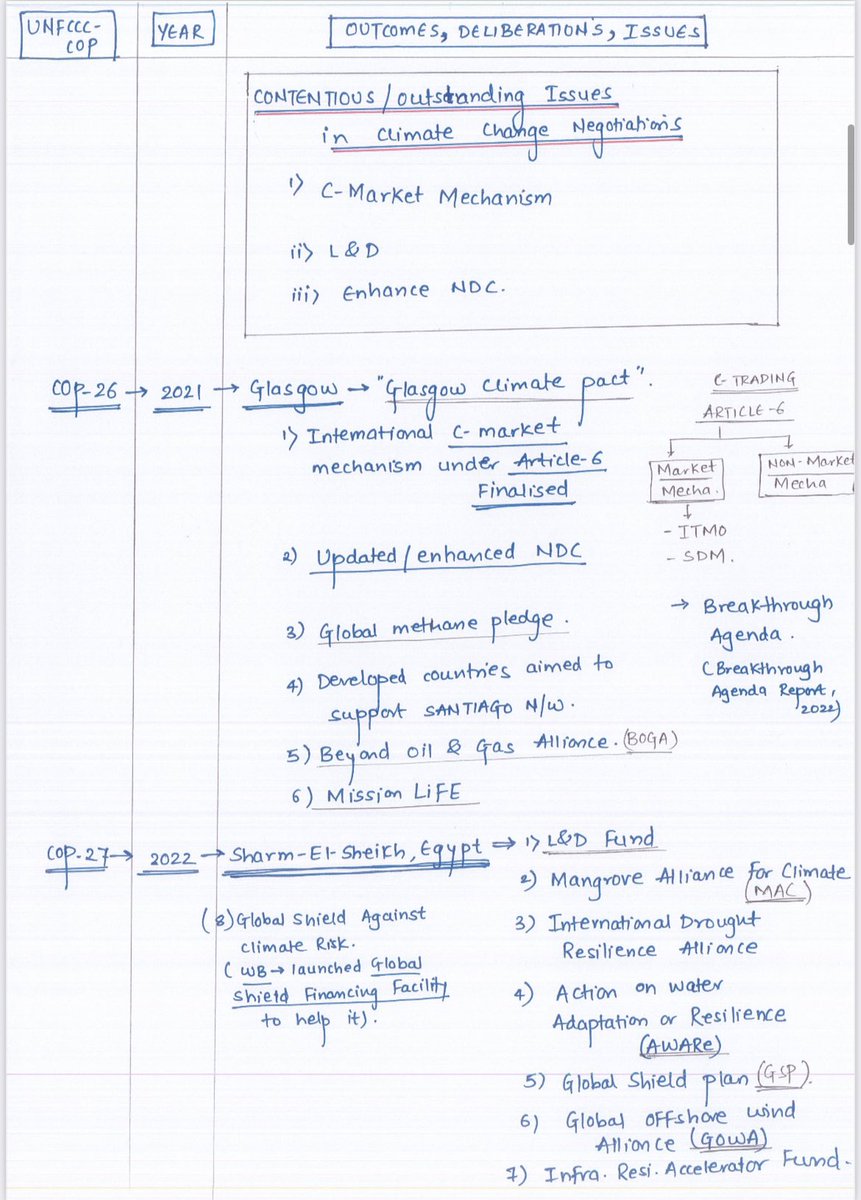 UNFCCC-
COP
YEAR
OUTCOMES, DELIBERATION'S, ISSUES
CONTENTIOUS / outstanding Issues
in climate Change Negotiation's
i) C-Market Mechanism
ii) L & D
iii) Enhance NDC.
COP-26 → 2021 → Glasgow → "Glasgow climate pact".
1) International C-market
mechanism under Article-6
Finalised
C-TRADING
ARTICLE-6
Market
Mecha.
NON-Market
Mecha
- ITMO
- SDM.
2) Updated/enhanced NDC
3) Global methane pledge.
4) Developed countries aimed to
support SANTIAGO N/W.
5) Beyond Oil & Gas Alliance. (BOGA)
6) Mission LiFE
→ Breakthrough
Agenda.
(Breakthrough
Agenda Report,
2022)
COP-27 → 2022 → Sharm-El-Sheikh, Egypt ⇒ 1) L&D Fund
2) Mangrove Alliance for Climate
(MAC)
3) International Drought
Resilience Alliance
4) Action on water
Adaptation or Resilience
(AWARe)
5) Global Shield plan (GSP).
6) Global offshore wind
Allionce (GOWA)
7) Infra. Resi. Accelerator Fund.
(8) Global Shield Against
climate Risk.
( WB → launched Global
Shield Financing Facility
to help it).